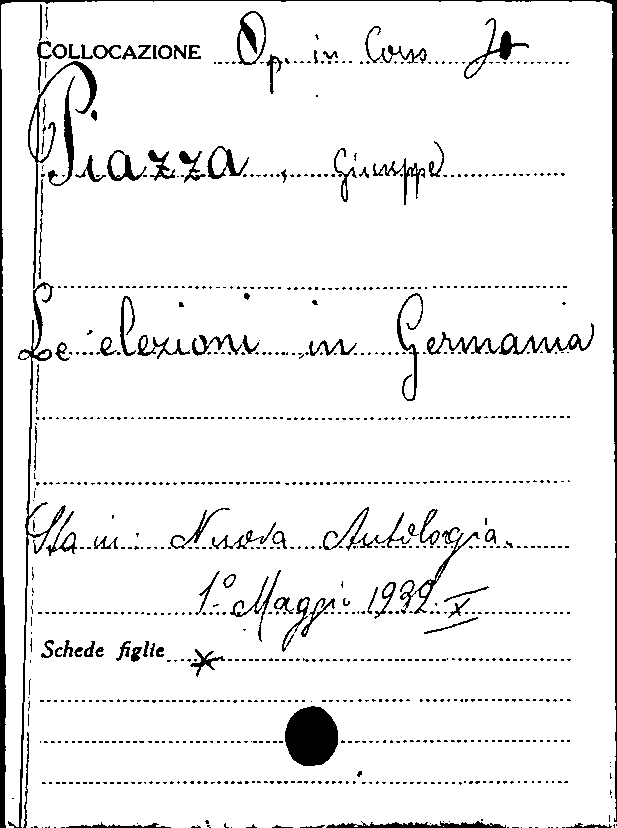 COLLOCAZIONE Op. in Corso
Piazza, Giuseppe
Le elezioni in Germania
Sta in: Nuova Antologia.
1.° Maggio 1932. X
Schede figlie